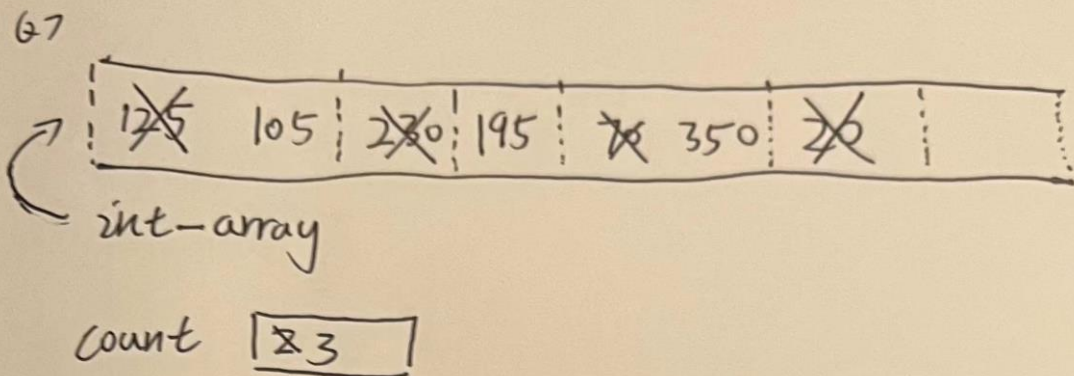 Q7
125 105 230 195 70 350 20
int-array
count 2 3